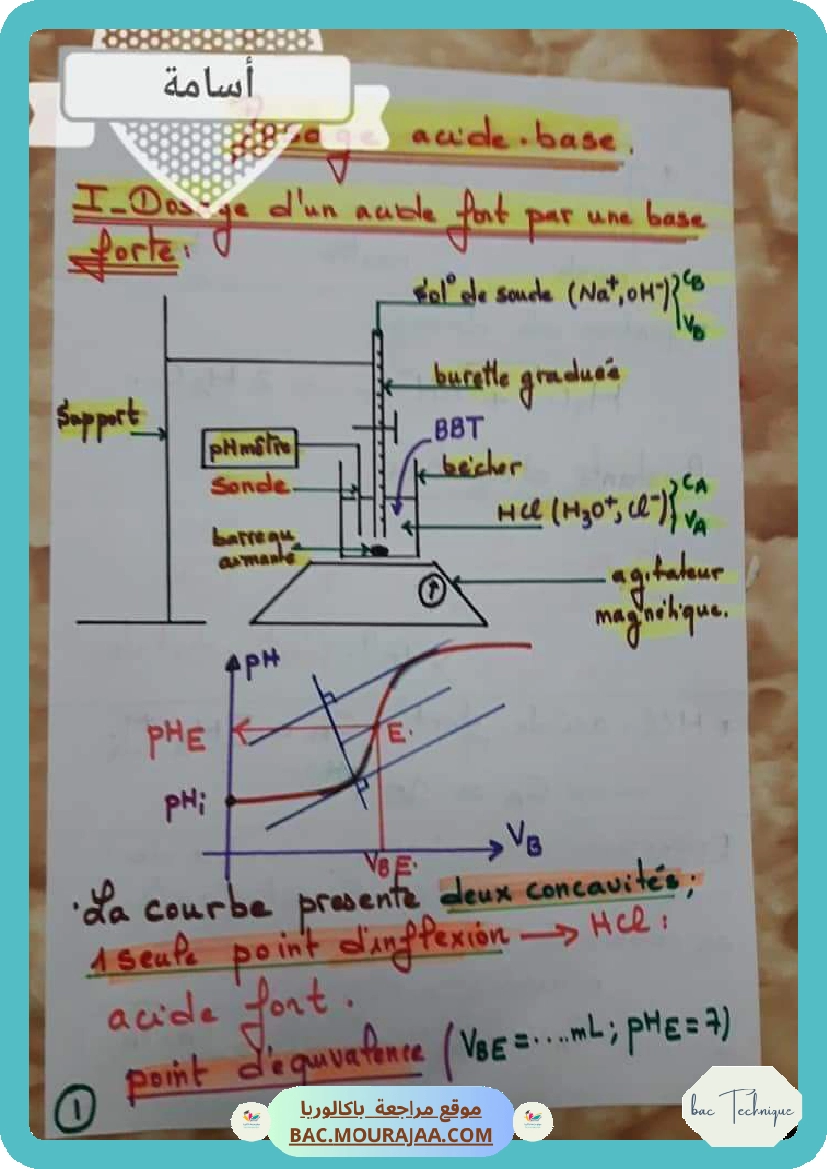 أسامة
Dosage acide-base.
I-① Dosage d'un acide fort par une base
forte:
Sol° de soude (Na⁺, OH⁻) } CB
VB
burette graduée
Support
BBT
pHmètre
bécher
sonde
HCl (H₃O⁺, Cl⁻) } CA
VA
barreau
aimanté
agitateur
magnétique.
pH
pHE
E.
pHi
VB
VBE.
. La courbe presente deux concavités;
1 seule point d'inflexion → HCl:
acide fort.
point d'équivalence (VBE = ....mL; pHE = 7)
①
bac Technique
موقع مراجعة باكالوريا
BAC.MOURAJAA.COM